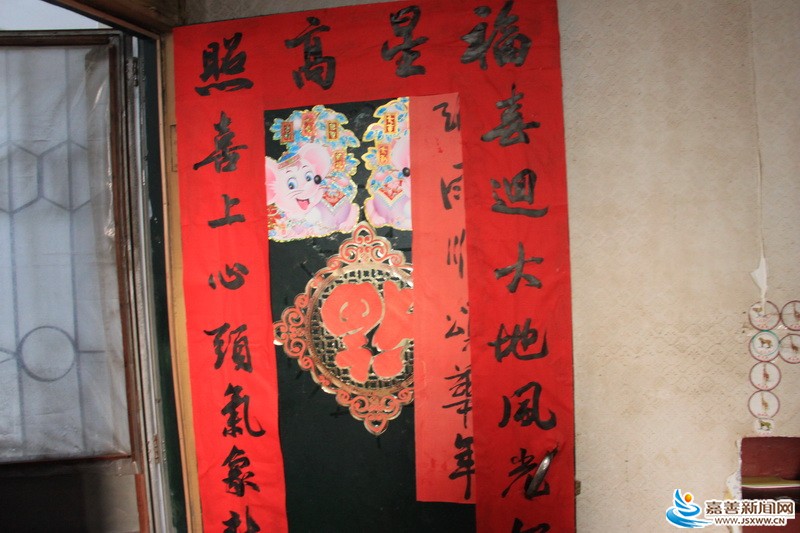 福星高照
春迴大地風光
喜上心頭氣象新
頌華年
嘉善新闻网
WWW.JSXWW.CN